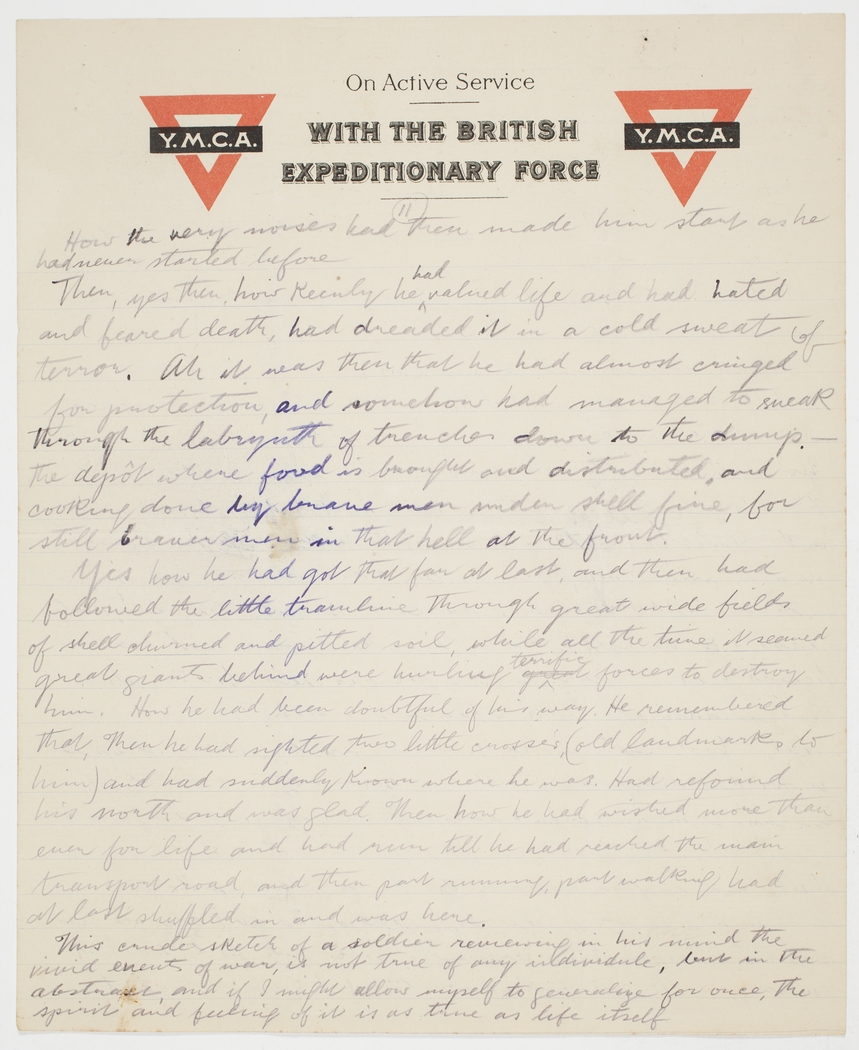 On Active Service
WITH THE BRITISH
EXPEDITIONARY FORCE
Y.M.C.A.
Y.M.C.A.
11
How the very noises had then made him start as he
had never started before
Then, yes then, how keenly he had valued life and had hated
and feared death, had dreaded it in a cold sweat of
terror. Ah it was then that he had almost cringed
for protection, and somehow had managed to sneak
through the labrynth of trenches down to the dump. —
the depôt where food is brought and distributed, and
cooking done by brave men under shell fire, for
still braver men in that hell at the front.
Yes how he had got that far at last, and then had
followed the little tramline through great wide fields
of shell churned and pitted soil, while all the time it seemed
great giants behind were hurling great terrific forces to destroy
him. How he had been doubtful of his way. He remembered
that. Then he had sighted two little crosses, (old landmarks to
him) and had suddenly known where he was. Had refound
his north and was glad. Then how he had wished more than
ever for life and had run till he had reached the main
transport road, and then part running, part walking had
at last shuffled in and was here.
This crude sketch of a soldier reviewing in his mind the
vivid events of war, is not true of any individule, but in the
abstract, and if I might allow myself to generalize for once, the
spirit and feeling of it is as true as life itself